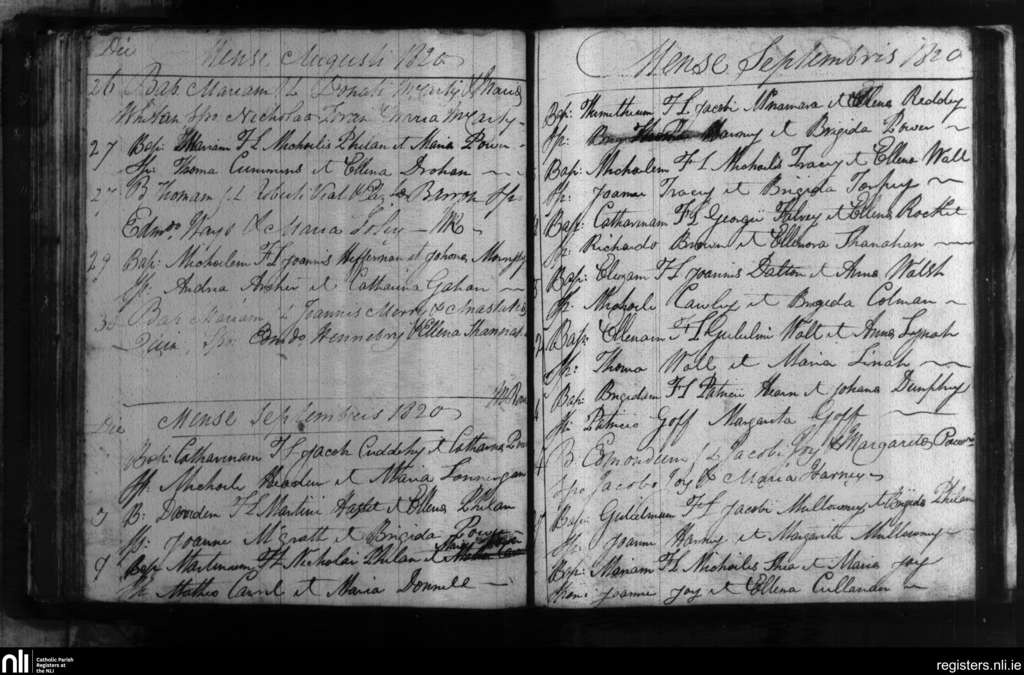 Die Mense Augusti 1820
26 Bap. Mariam L Donati & Maria
Spo Nicholao et Maria
27 Bap: Mariam F L Michaelis Philan et Maria Power
Sp: Thoma Cummins et Ellena Drohan
27 B Thomam L Roberti &
Edmdo Ways & Maria
29 Bap: Michaelem F L Joannis Hefferman et Johana Murphy
Sp: Andrea Archer et Catharina Gahan
30 Bap Mariam L Joannis Morry & Anastatia
Spo: Edmdo Hennessy & Ellena
Die Mense Septembris 1820
Bap: Catharinam F L Jacobi Cuddihy et Catharina
Sp: Michaele et Maria Lonnergan
3 B: Davidem F L Martini et Ellena Philan
Sp: Joanne McGrath et Brigida Power
9 Bap Martinum F L Nicholai Philan et
Sp: Matheo et Maria Donnell
Mense Septembris 1820
Bap: F L Jacobi McNamara et Ellena Reddy
Sp: et Brigida Power
Bap: Michaelem F L Michaelis Tracey et Ellena Wall
Sp: Joanne Tracy et Brigida Torpey
Bap: Catharinam F L Georgii et Ellena Rocket
Sp: Richardo Brown et Ellenora Shanahan
Bap: Elizam F L Joannis Dalton et Anna Walsh
Sp: Michaele Cawley et Brigida Colman
Bap: Ellenam F L Gulielmi Wall et Anna
Sp: Thoma Wall et Maria
Bap: Brigidam F L Patricii Hearn et Johana Dunphy
Sp: Patricio Goff Margarita Goff
B Edmondum L Jacobi Joy & Margarita Power
Spo Jacobo Joy & Maria Harney
Bap: Gulielmum F L Jacobi Mullowney et Brigida Philan
Sp: Joanne Harney et Margarita Mullowney
Bap: Mariam F L Michaelis Shea et Maria Joy
Joanne Joy et Ellena Cullanan
nli
Catholic Parish
Registers at
the NLI
registers.nli.ie